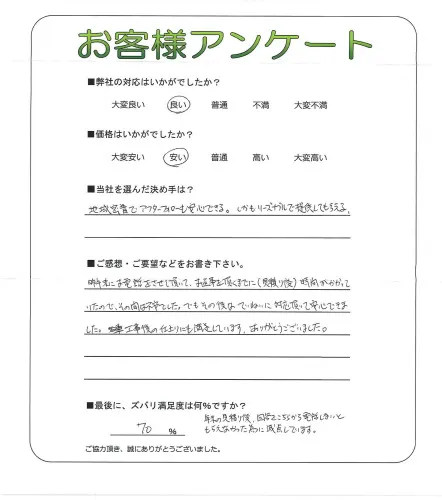 お客様アンケート
■弊社の対応はいかがでしたか？
大変良い 良い 普通 不満 大変不満
■価格はいかがでしたか？
大変安い 安い 普通 高い 大変高い
■当社を選んだ決め手は？
地域密着でアフターフォローも安心できる。しかもリーズナブルで提供してもらえる。
■ご感想・ご要望などをお書き下さい。
昨年末にお電話をさせて頂いて、お返事を頂くまでに(見積り後)時間がかかって
いたので、その間は不安でした。でもその後はていねいに対応頂いて安心できま
した。工事後の仕上りにも満足しています。ありがとうございました。
■最後に、ズバリ満足度は何%ですか？
70 %
年末の見積り後、回答をこちらから電話しないと
もらえなかった為に減点しています。
ご協力頂き、誠にありがとうございました。